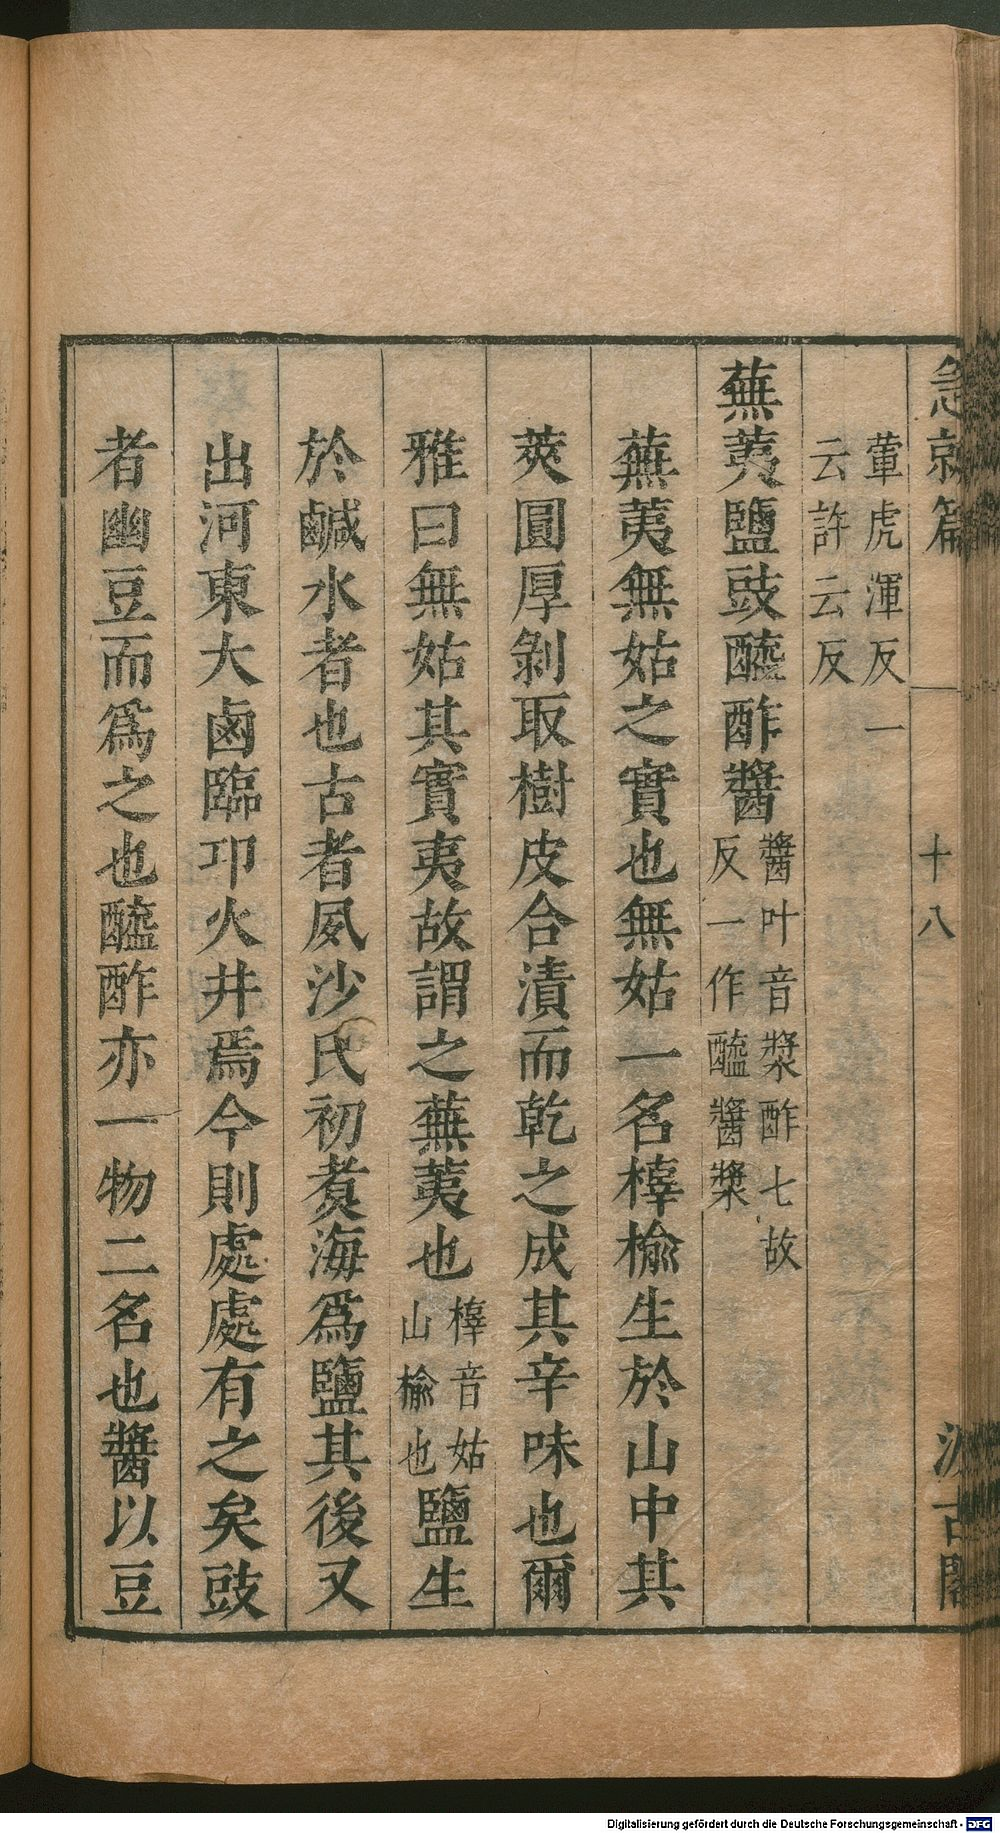 急就篇 十八 汲古閣
葷虎渾反一
云許云反
蕪荑鹽豉醯酢醬
醬叶音漿酢七故
反一作醯醬漿
蕪荑無姑之實也無姑一名樟榆生於山中其
莢圓厚剝取樹皮合漬而乾之成其辛味也爾
雅曰無姑其實夷故謂之蕪荑也
樟音姑
山榆也
鹽生
於鹹水者也古者夙沙氏初煑海爲鹽其後又
出河東大鹵臨卭火井焉今則處處有之矣豉
者幽豆而爲之也醯酢亦一物二名也醬以豆
Digitalisierung gefördert durch die Deutsche Forschungsgemeinschaft - DFG